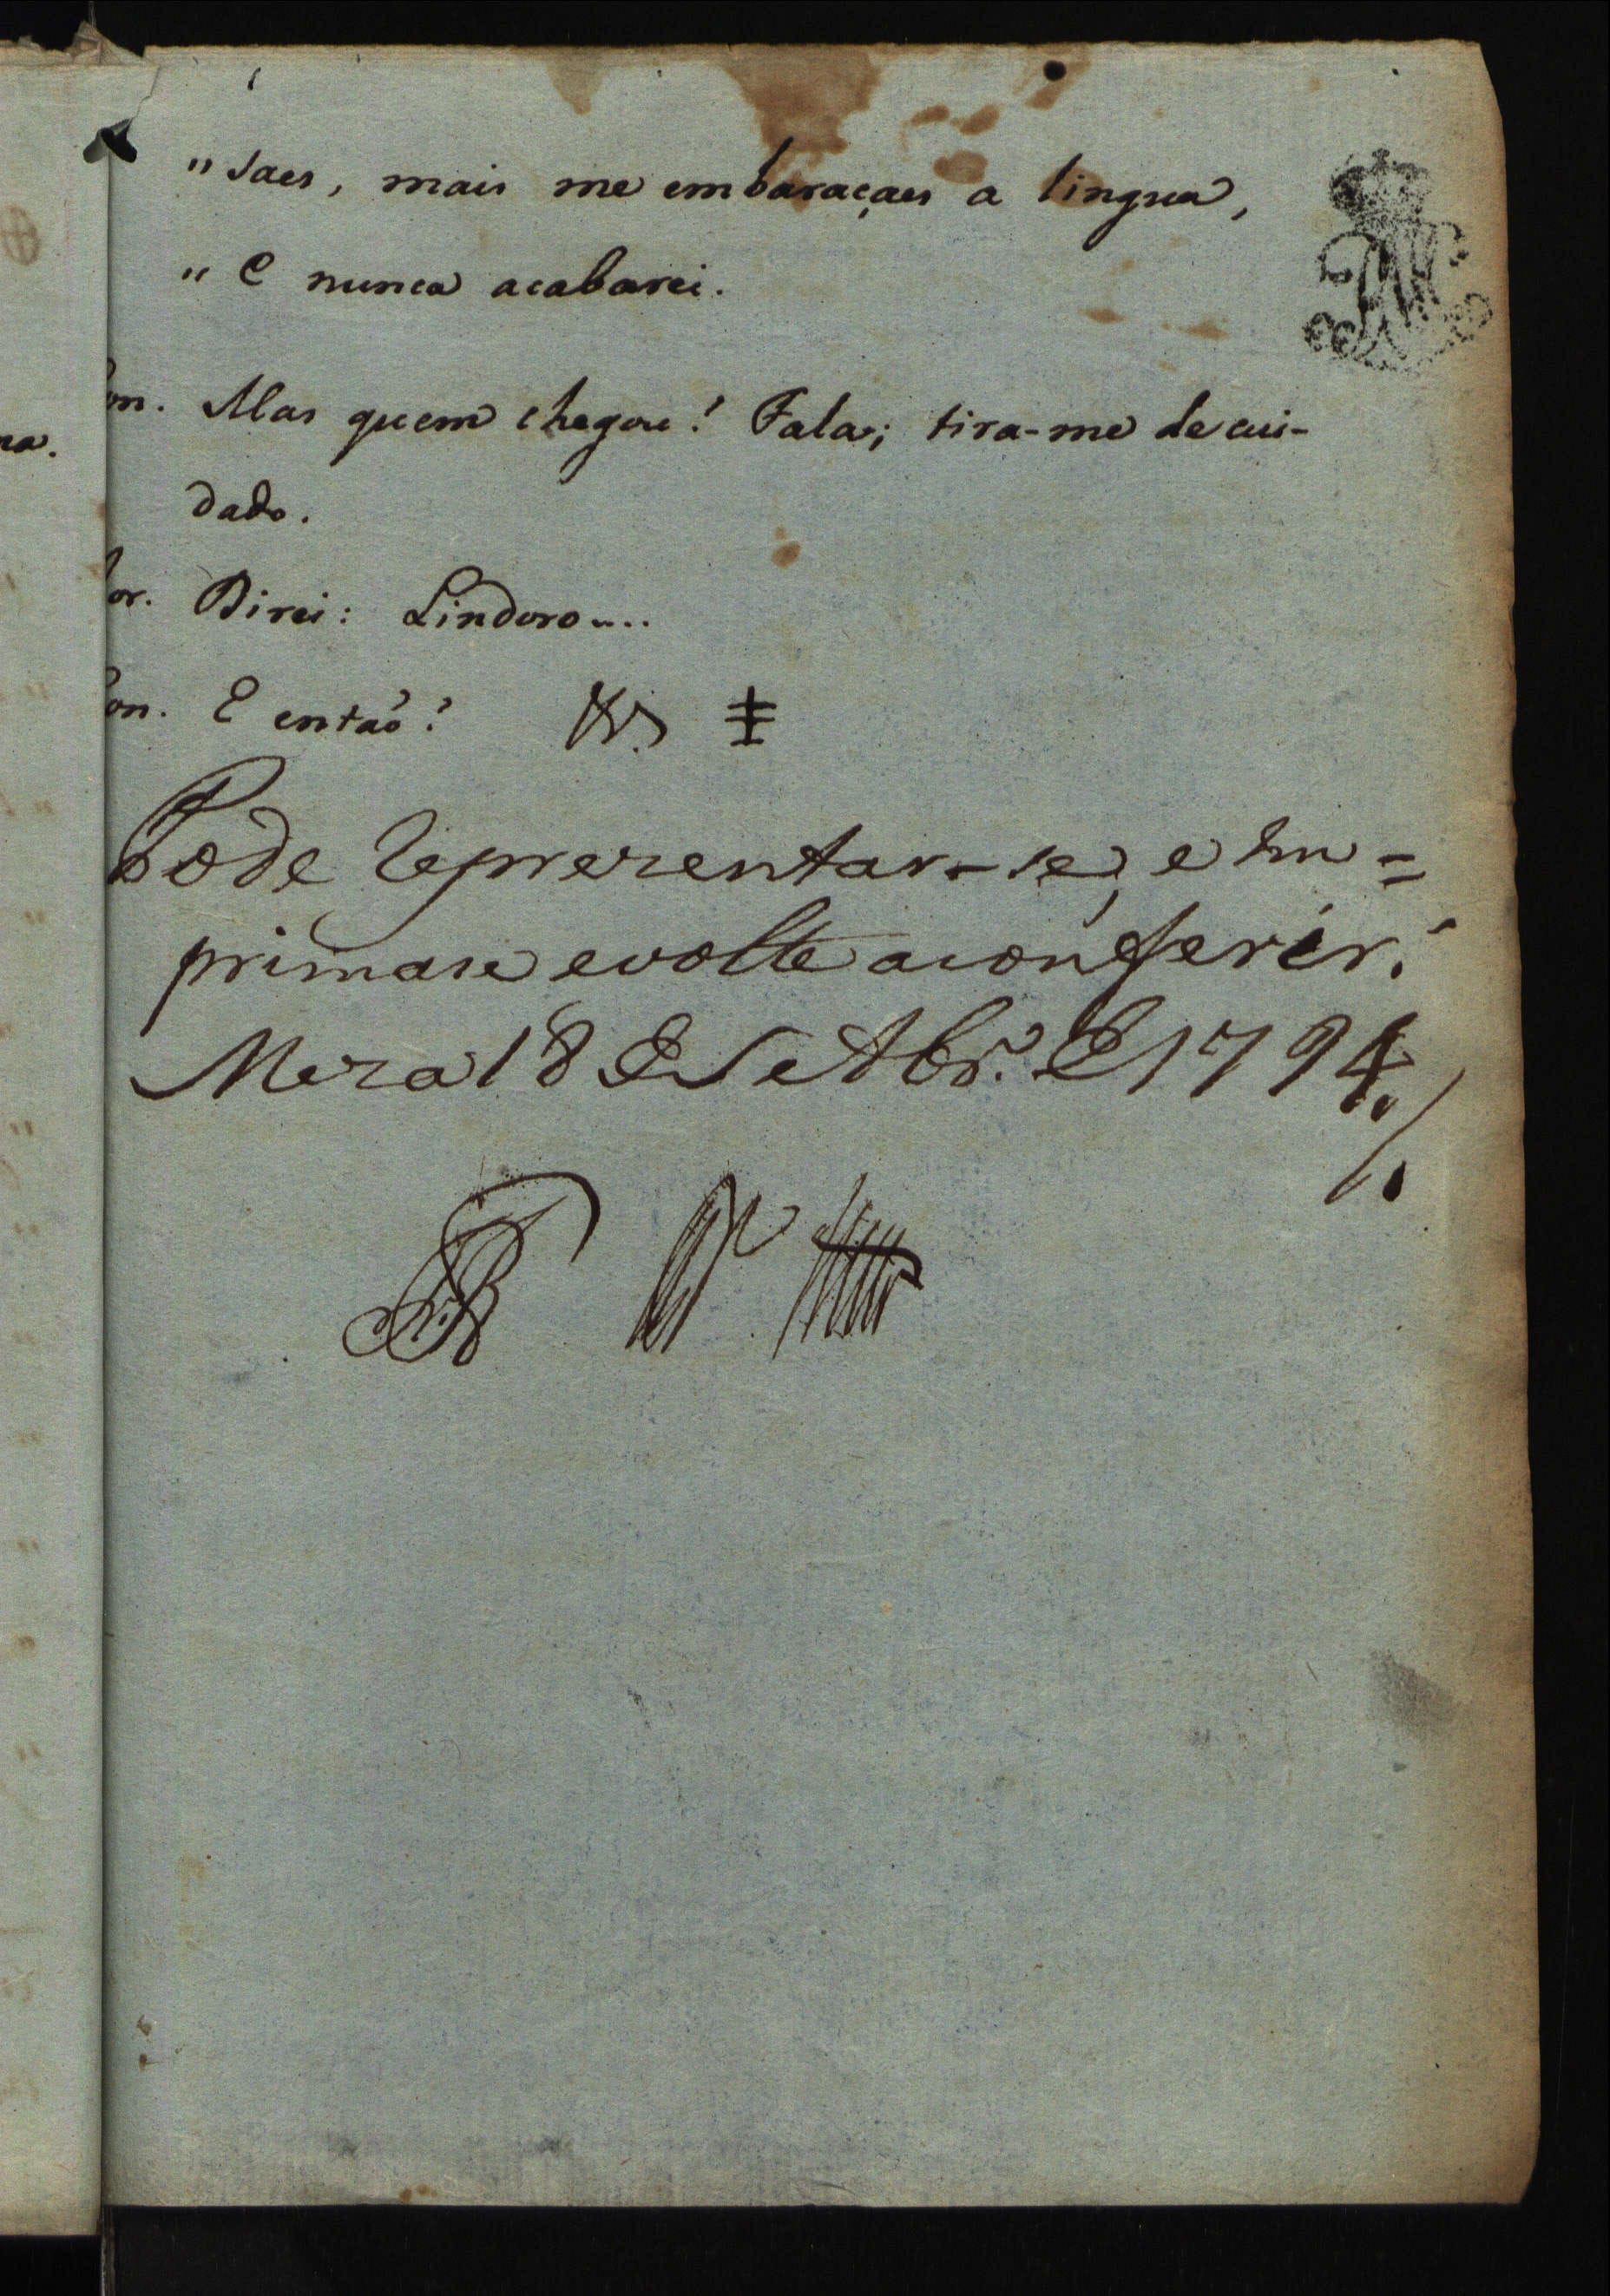 " saes, mais me embaraçaes a lingua,
" E nunca acabarei.
on. Mas quem chegou? Fala; tira-me de cui-
dado.
or. Direi: Lindoro....
on. E então?
Pode representar-se, e Im=
primase e volte a conferir.
Meza 18 de Setbr.º de 1794.